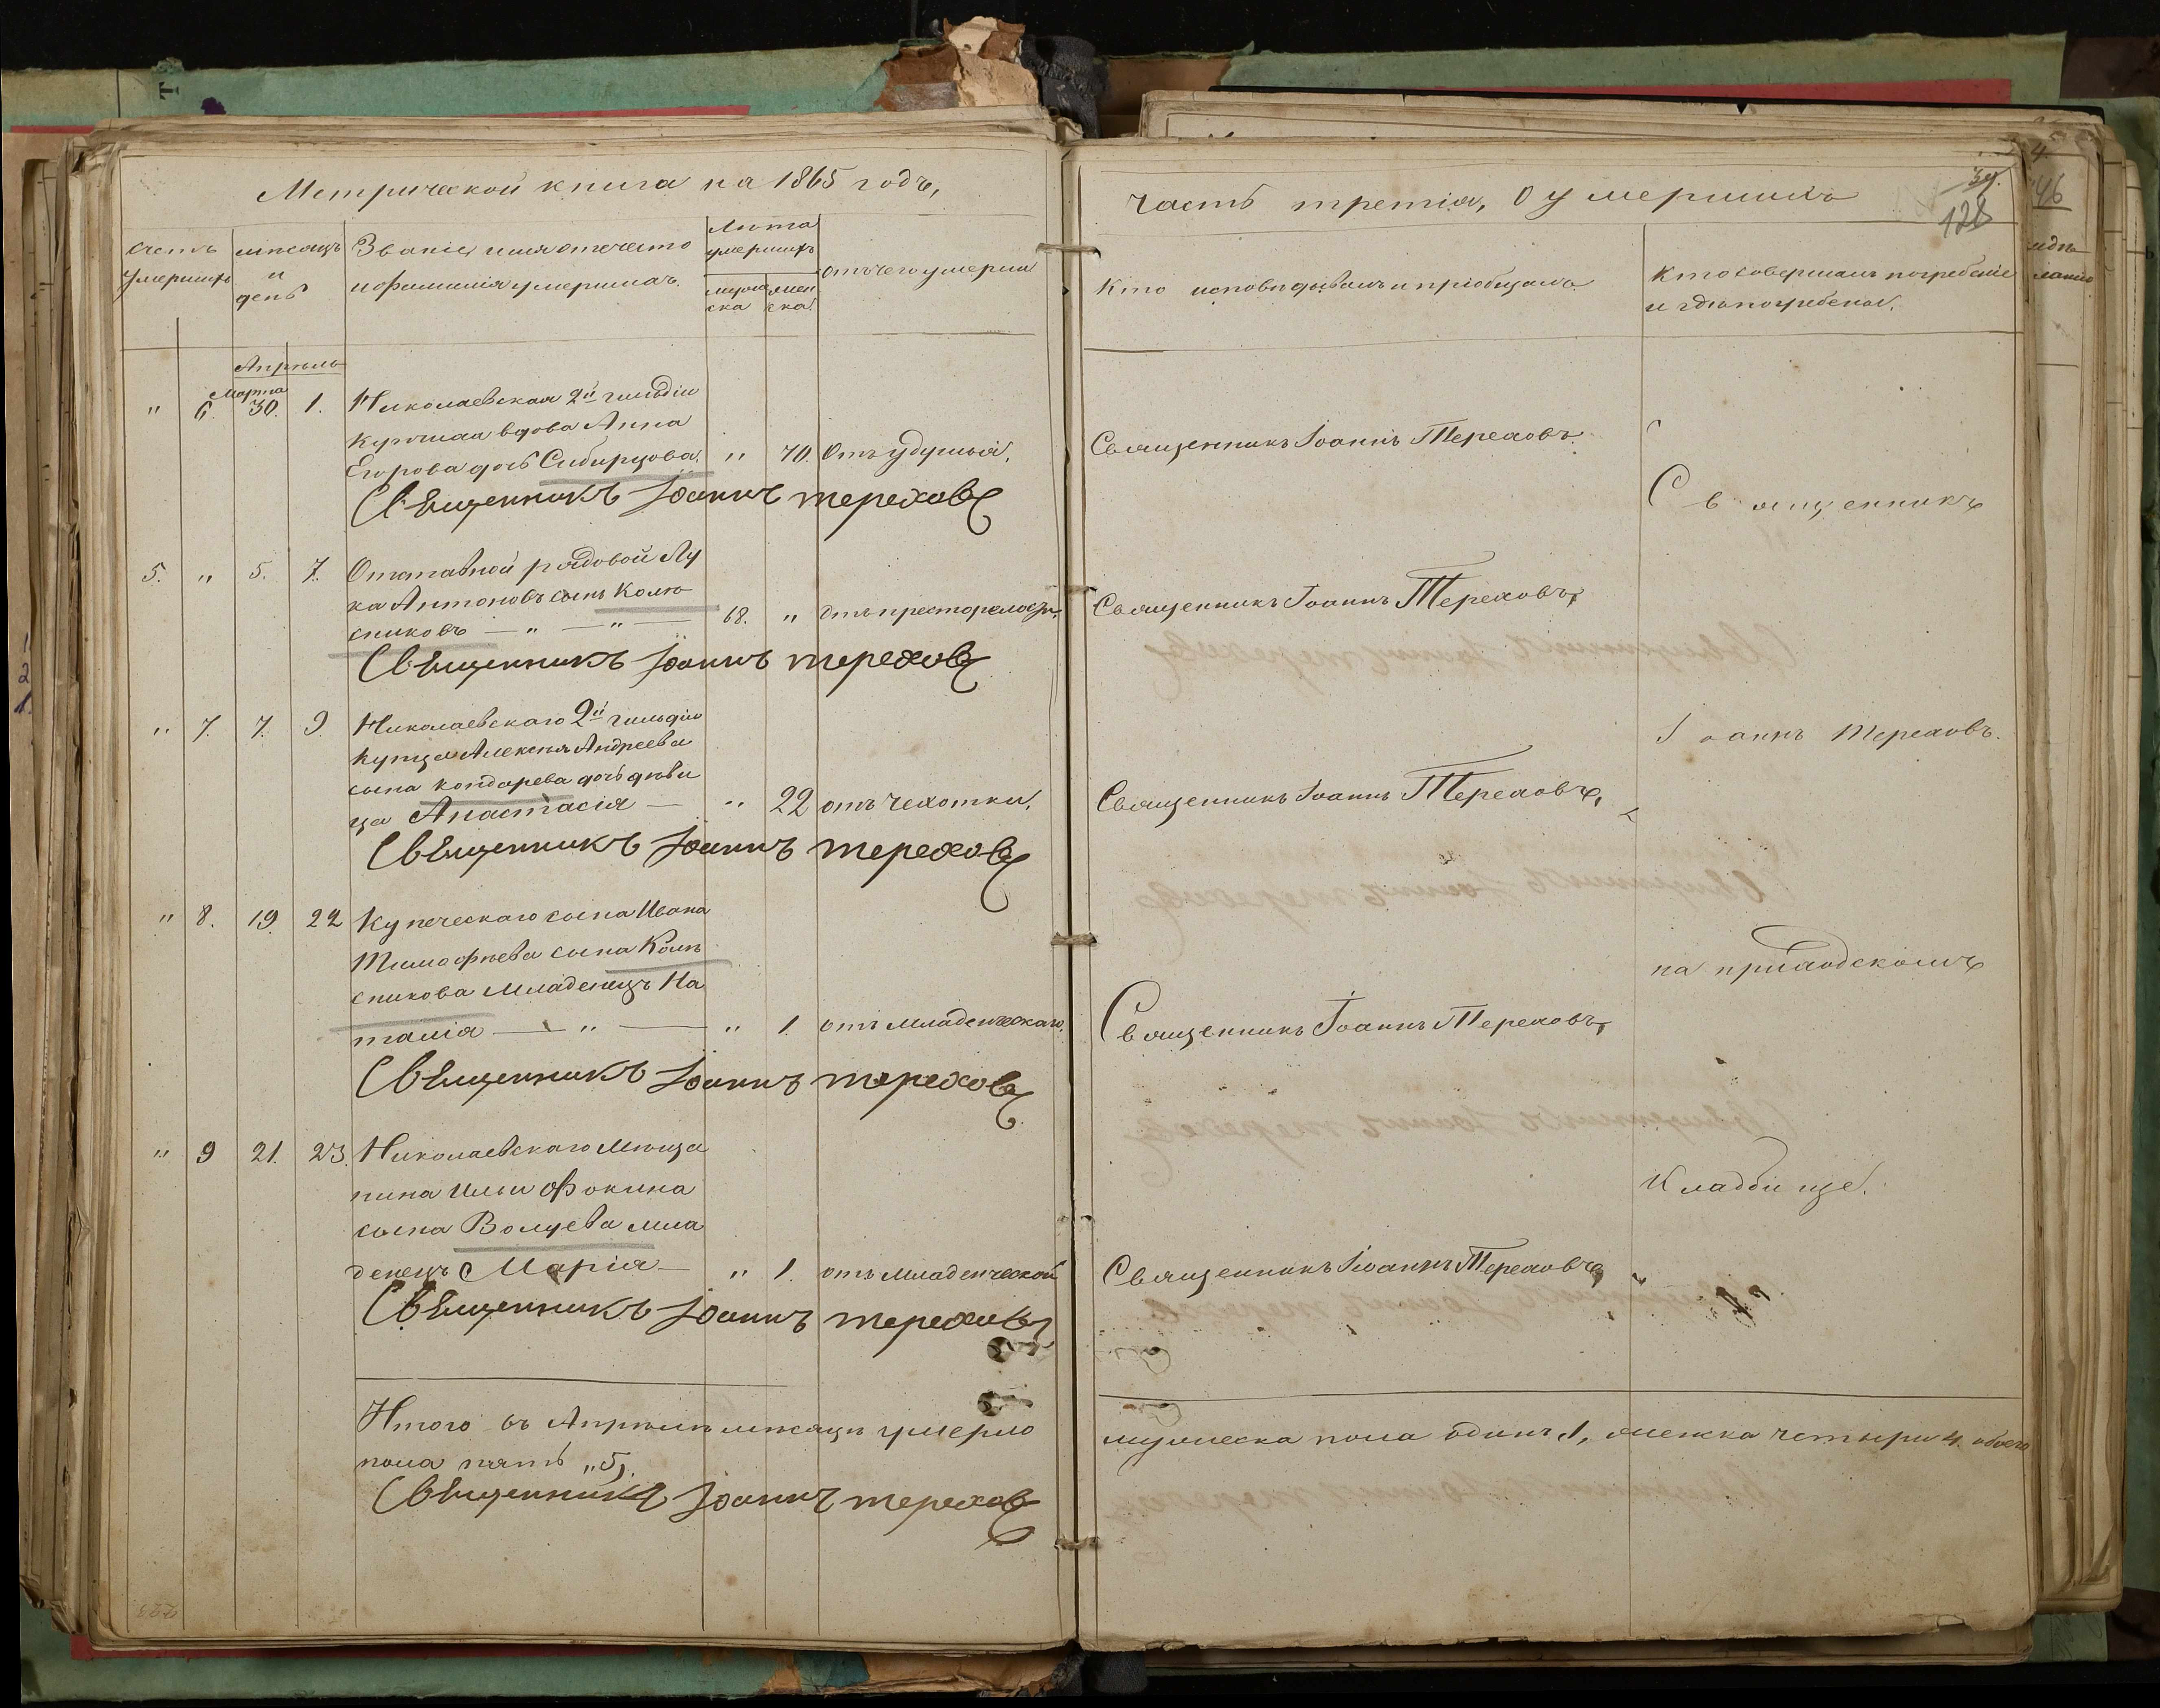 Метрической книга на 1865 годъ,
счетъ умершихъ
мѣсяцъ и день
Званіе имя отечество
и фамилія умершихъ.
Лѣта умершихъ
мужеска
женска
отъ чего умерли
Апрѣль
Марта
" 6. 30. 1. Николаевская 2й гильдіи
купчиха вдова Анна
Егорова дочь Сибирцова. " 70. Отъ удушья.
Священникъ Іоаннъ Тереховъ
5. " 5. 7. Отставной рядовой Лу
ка Антоновъ сынъ Колѣ
сниковъ — " — " — 68. " отъ престорелости.
Священникъ Іоаннъ Тереховъ
" 7. 7. 9. Николаевскаго 2й гильдіи
купца Алексѣя Андреева
сына Кондарева дочь дѣви
ца Анастасія — " 22 отъ чехотки.
Священникъ Іоаннъ Тереховъ
" 8. 19. 22 Купеческаго сына Ивана
Тимофѣева сына Колѣ
сникова младенецъ На
талія — " — " 1. отъ младенческаго.
Священникъ Іоаннъ Тереховъ
" 9 21. 23. Николаевскаго мѣща
нина Ильи Фокина
сына Волцева мла
денецъ Марія — " 1. отъ младенческой
Священникъ Іоаннъ Тереховъ
Итого въ Апрѣлѣ мѣсяцѣ умерло
пола пять "5".
Священникъ Іоаннъ Тереховъ
часть третія, О умершихъ
128
Кто исповѣдывалъ и пріобщалъ.
Кто совершалъ погребеніе
и гдѣ погребены.
Священникъ Іоаннъ Тереховъ.
Священникъ
Священникъ Іоаннъ Тереховъ,
Іоаннъ Тереховъ.
Священникъ Іоаннъ Тереховъ,
на приходскомъ
Священникъ Іоаннъ Тереховъ,
Кладбище.
Священникъ Іоаннъ Тереховъ
мужеска пола одинъ 1, женска четыри 4. обоего
46